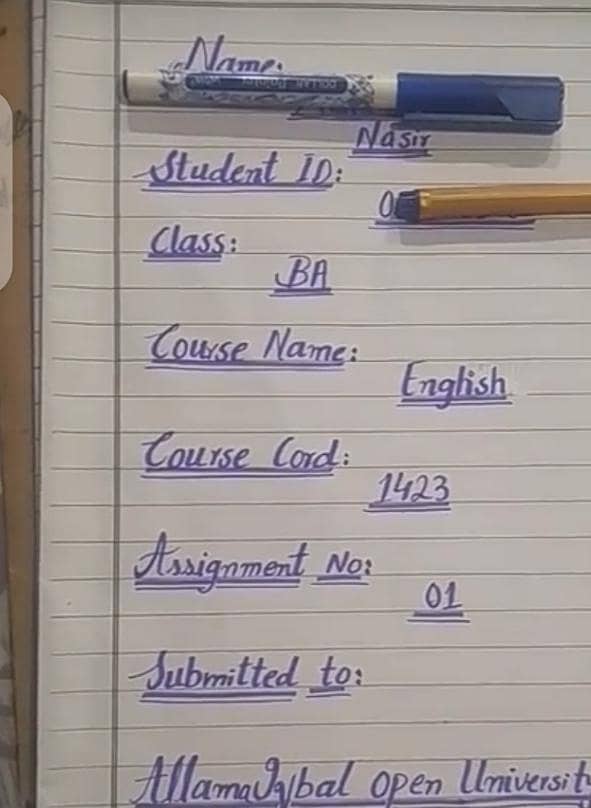 Name:
Nasir
Student ID:
Class:
BA
Course Name:
English
Course Cord:
1423
Assignment No:
01
Submitted to:
Allama Iqbal open University